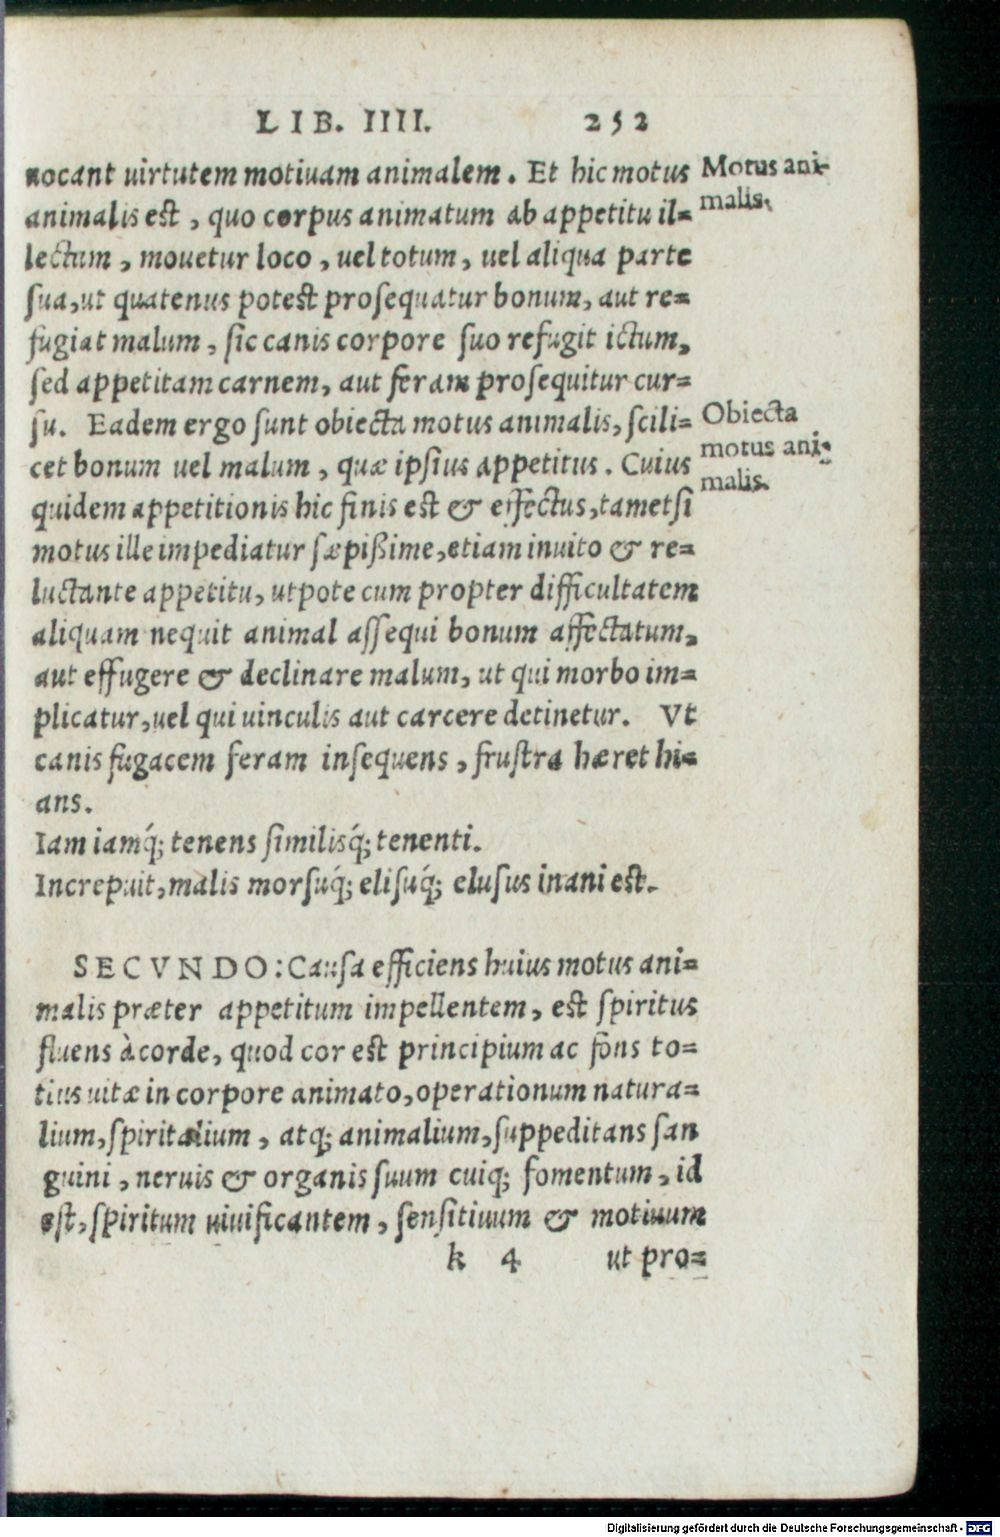 LIB. IIII. 252
uocant uirtutem motiuam animalem. Et hic motus
Motus ani-
malis.
animalis est, quo corpus animatum ab appetitu il=
lectum, mouetur loco, uel totum, uel aliqua parte
sua, ut quatenus potest prosequatur bonum, aut re=
fugiat malum, sic canis corpore suo refugit ictum,
sed appetitam carnem, aut feram prosequitur cur=
su. Eadem ergo sunt obiecta motus animalis, scili=
Obiecta
motus ani-
malis.
cet bonum uel malum, quæ ipsius appetitus. Cuius
quidem appetitionis hic finis est & effectus, tametsi
motus ille impediatur sæpißime, etiam inuito & re=
luctante appetitu, utpote cum propter difficultatem
aliquam nequit animal assequi bonum affectatum,
aut effugere & declinare malum, ut qui morbo im=
plicatur, uel qui uinculis aut carcere detinetur. Vt
canis fugacem feram insequens, frustra hæret hi=
ans.
Iam iamq́; tenens similisq́; tenenti.
Increpuit, malis morsuq́; elisuq́; elusus inani est.
SECVNDO: Causa efficiens huius motus ani=
malis præter appetitum impellentem, est spiritus
fluens à corde, quod cor est principium ac fons to=
tius uitæ in corpore animato, operationum natura=
lium, spiritalium, atq; animalium, suppeditans san
guini, neruis & organis suum cuiq; fomentum, id
est, spiritum uiuificantem, sensitiuum & motiuum
k 4 ut pro=
Digitalisierung gefördert durch die Deutsche Forschungsgemeinschaft - DFG